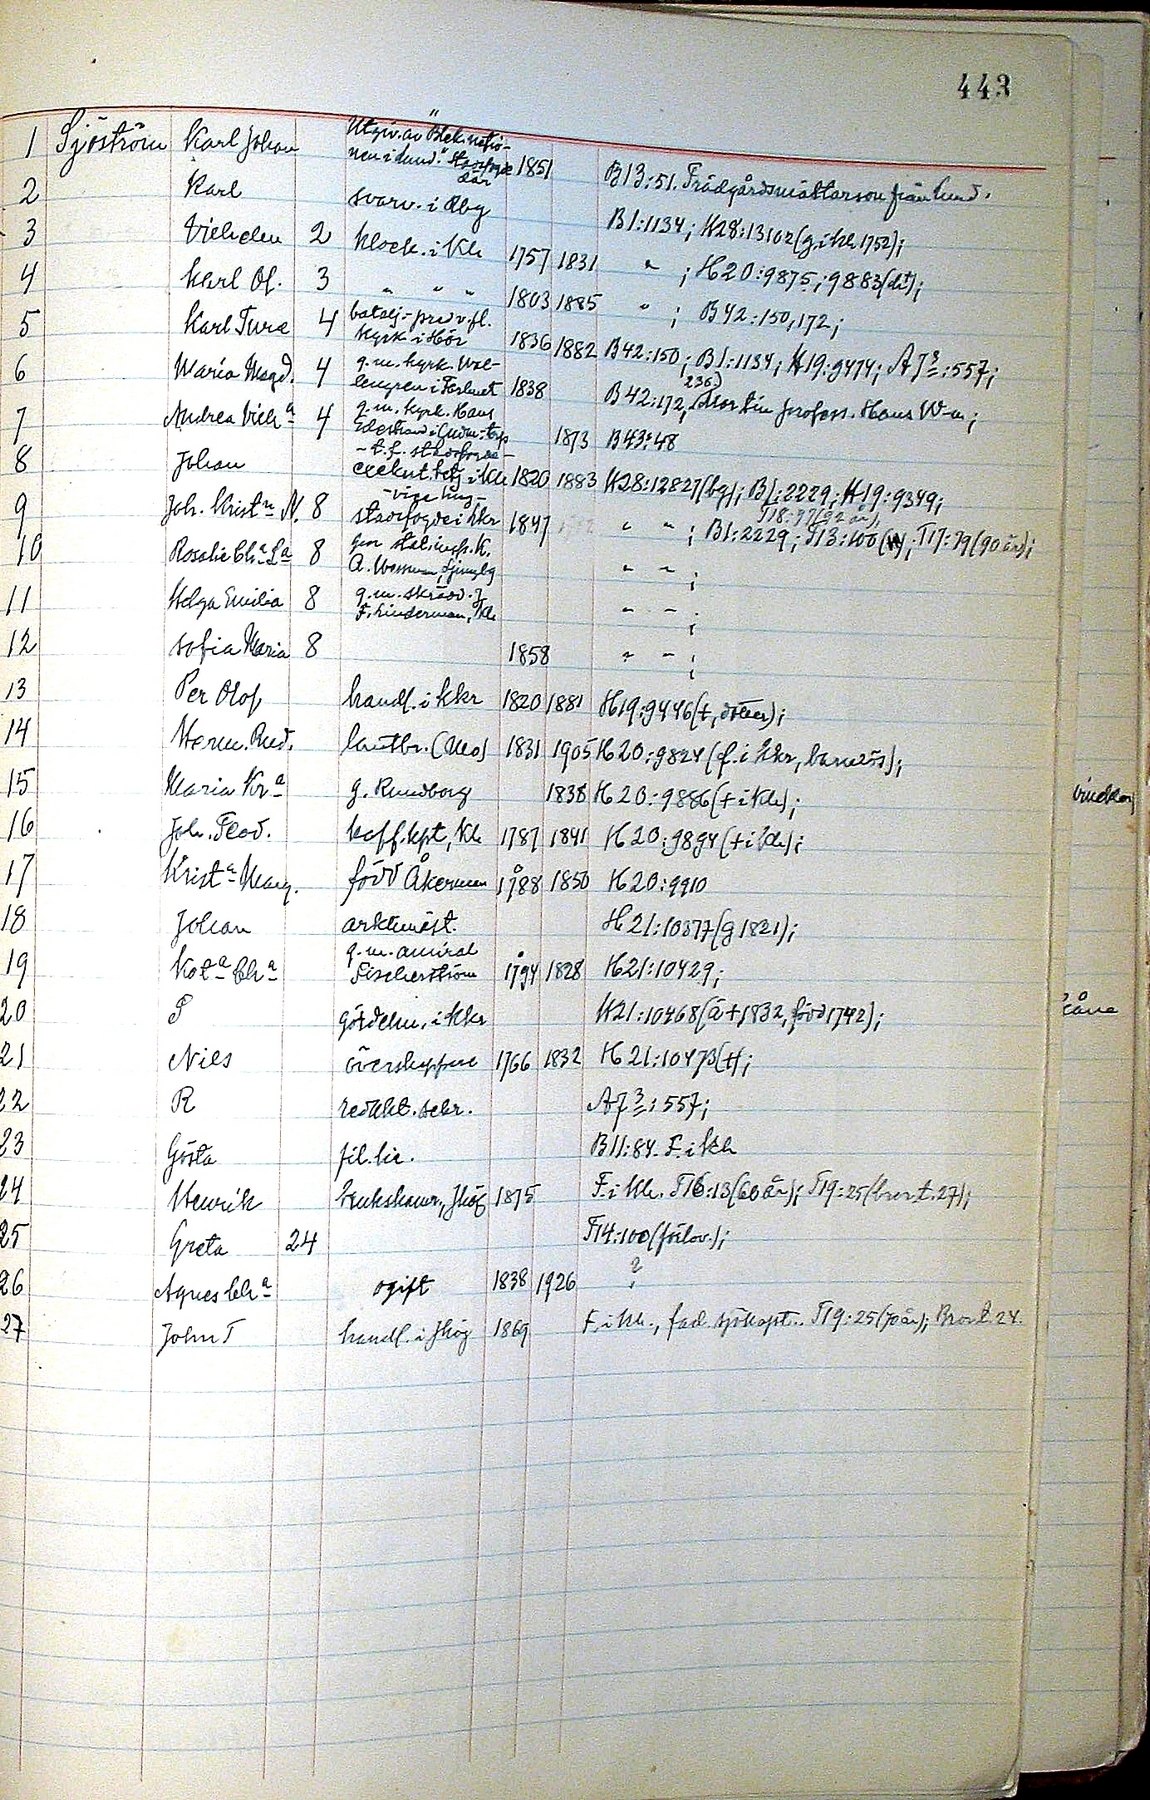 443
1 Sjöström Karl Johan Utgiv. av "Blek. natio-
nen i Lund." Stadsfogde 1851 B13:51. Trädgårdsmästarson från Lund.
där
2 Karl svarv. i Rbg B1:1134; H28:13102 (g. i Kh 1752);
3 Vilhelm 2 klock. i Kh 1757 1831 " ; H20:9875; 9883 (dt);
4 Karl Ol. 3 " " " 1803 1885 " ; B42:150,172;
5 Karl Ture 4 batalj.-pred v. fl.
kyrk i Hör 1836 1882 B42:150; B1:1134; H19:9474; A7³:557;
6 Maria Magd. 4 g. m. kyrk. Wel-
lengren i 1838 B42:172, 236) Hans W-n;
7 Andrea Vilhª 4 g. m. kyrk. Hans
1873 B43:48
8 Johan - t.f. stadsfogde -
exekut. betj. i Kh 1820 1883 H28:12827 (bg); B1:2229; H19:9349;
9 Joh. Kristn N. 8 - vice
stadsfogde i Kkr 1847 " " ; B1:2229; T13:100 ; T17:79 (90 år);
T18:97 (92 år);
10 Rosalie Chª Lª 8 " " ;
A. Ljungbg
11 Helga Emilia 8 g. m. skrädd. J
F. Linderman, Kh " " ;
12 Sofia Maria 8 1858 " " ;
13 Per Olof handl. i Kkr 1820 1881 H19:9446 (+, dotter);
14 Herm. Rud. lantbr. (Mo) 1831 1905 H20:9824 (f. i Kkr, barnlös);
15 Maria Krª g. Rundborg 1838 H20:9886 (+ i Kh);
16 Joh. Teod. koff.kpt, Kh 1787 1841 H20:9894 (+ i Kh);
17 Kristª Marg. född Åkerman 1788 1850 H20:9910
18 Johan arklimäst. H21:10377 (g 1821);
19 Katª Chª g. m. amiral
Fischerström 1794 1828 H21:10429;
20 P gördelm. i Kkr H21:10468 (ä + 1832, född 1742);
21 Nils överskeppare 1766 1832 H21:10473 (+);
22 R redakt. sekr. A7³:557;
23 Gösta fil. lic. B11:84. F. i Kh
24 Henrik 1875 F. i Kh. T16:13 (60 år); T19:25 (bror t. 27);
25 Greta 24 T14:100 (förlov.);
26 Agnes Chª ogift 1838 1926 ?
27 John T handl. i Jhög 1869 F. i Kh., fad. sjökapt. T19:25 (70 år); Bror t. 24.